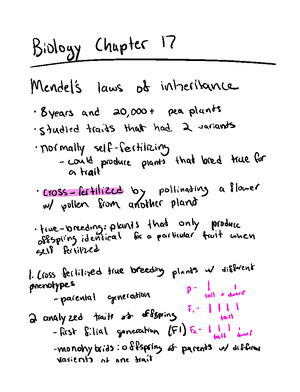 Biology Chapter 17
Mendel's laws of inheritance
· 8 years and 20,000+ pea plants
· studied traits that had 2 variants
· normally self-fertilizing
- could produce plants that bred true for
a trait
· cross-fertilized by pollinating a flower
w/ pollen from another plant
· true-breeding: plants that only produce
offspring identical for a particular trait when
self fertilized
1. cross fertilized true breeding plants w/ different
phenotypes
- parental generation
P -
tall x dwarf
F₁ -
tall
2 analyzed traits of offspring
- first filial generation (F1)
F₂ -
tall dwarf
- monohybrids: offspring of parents w/ different
varients of one trait